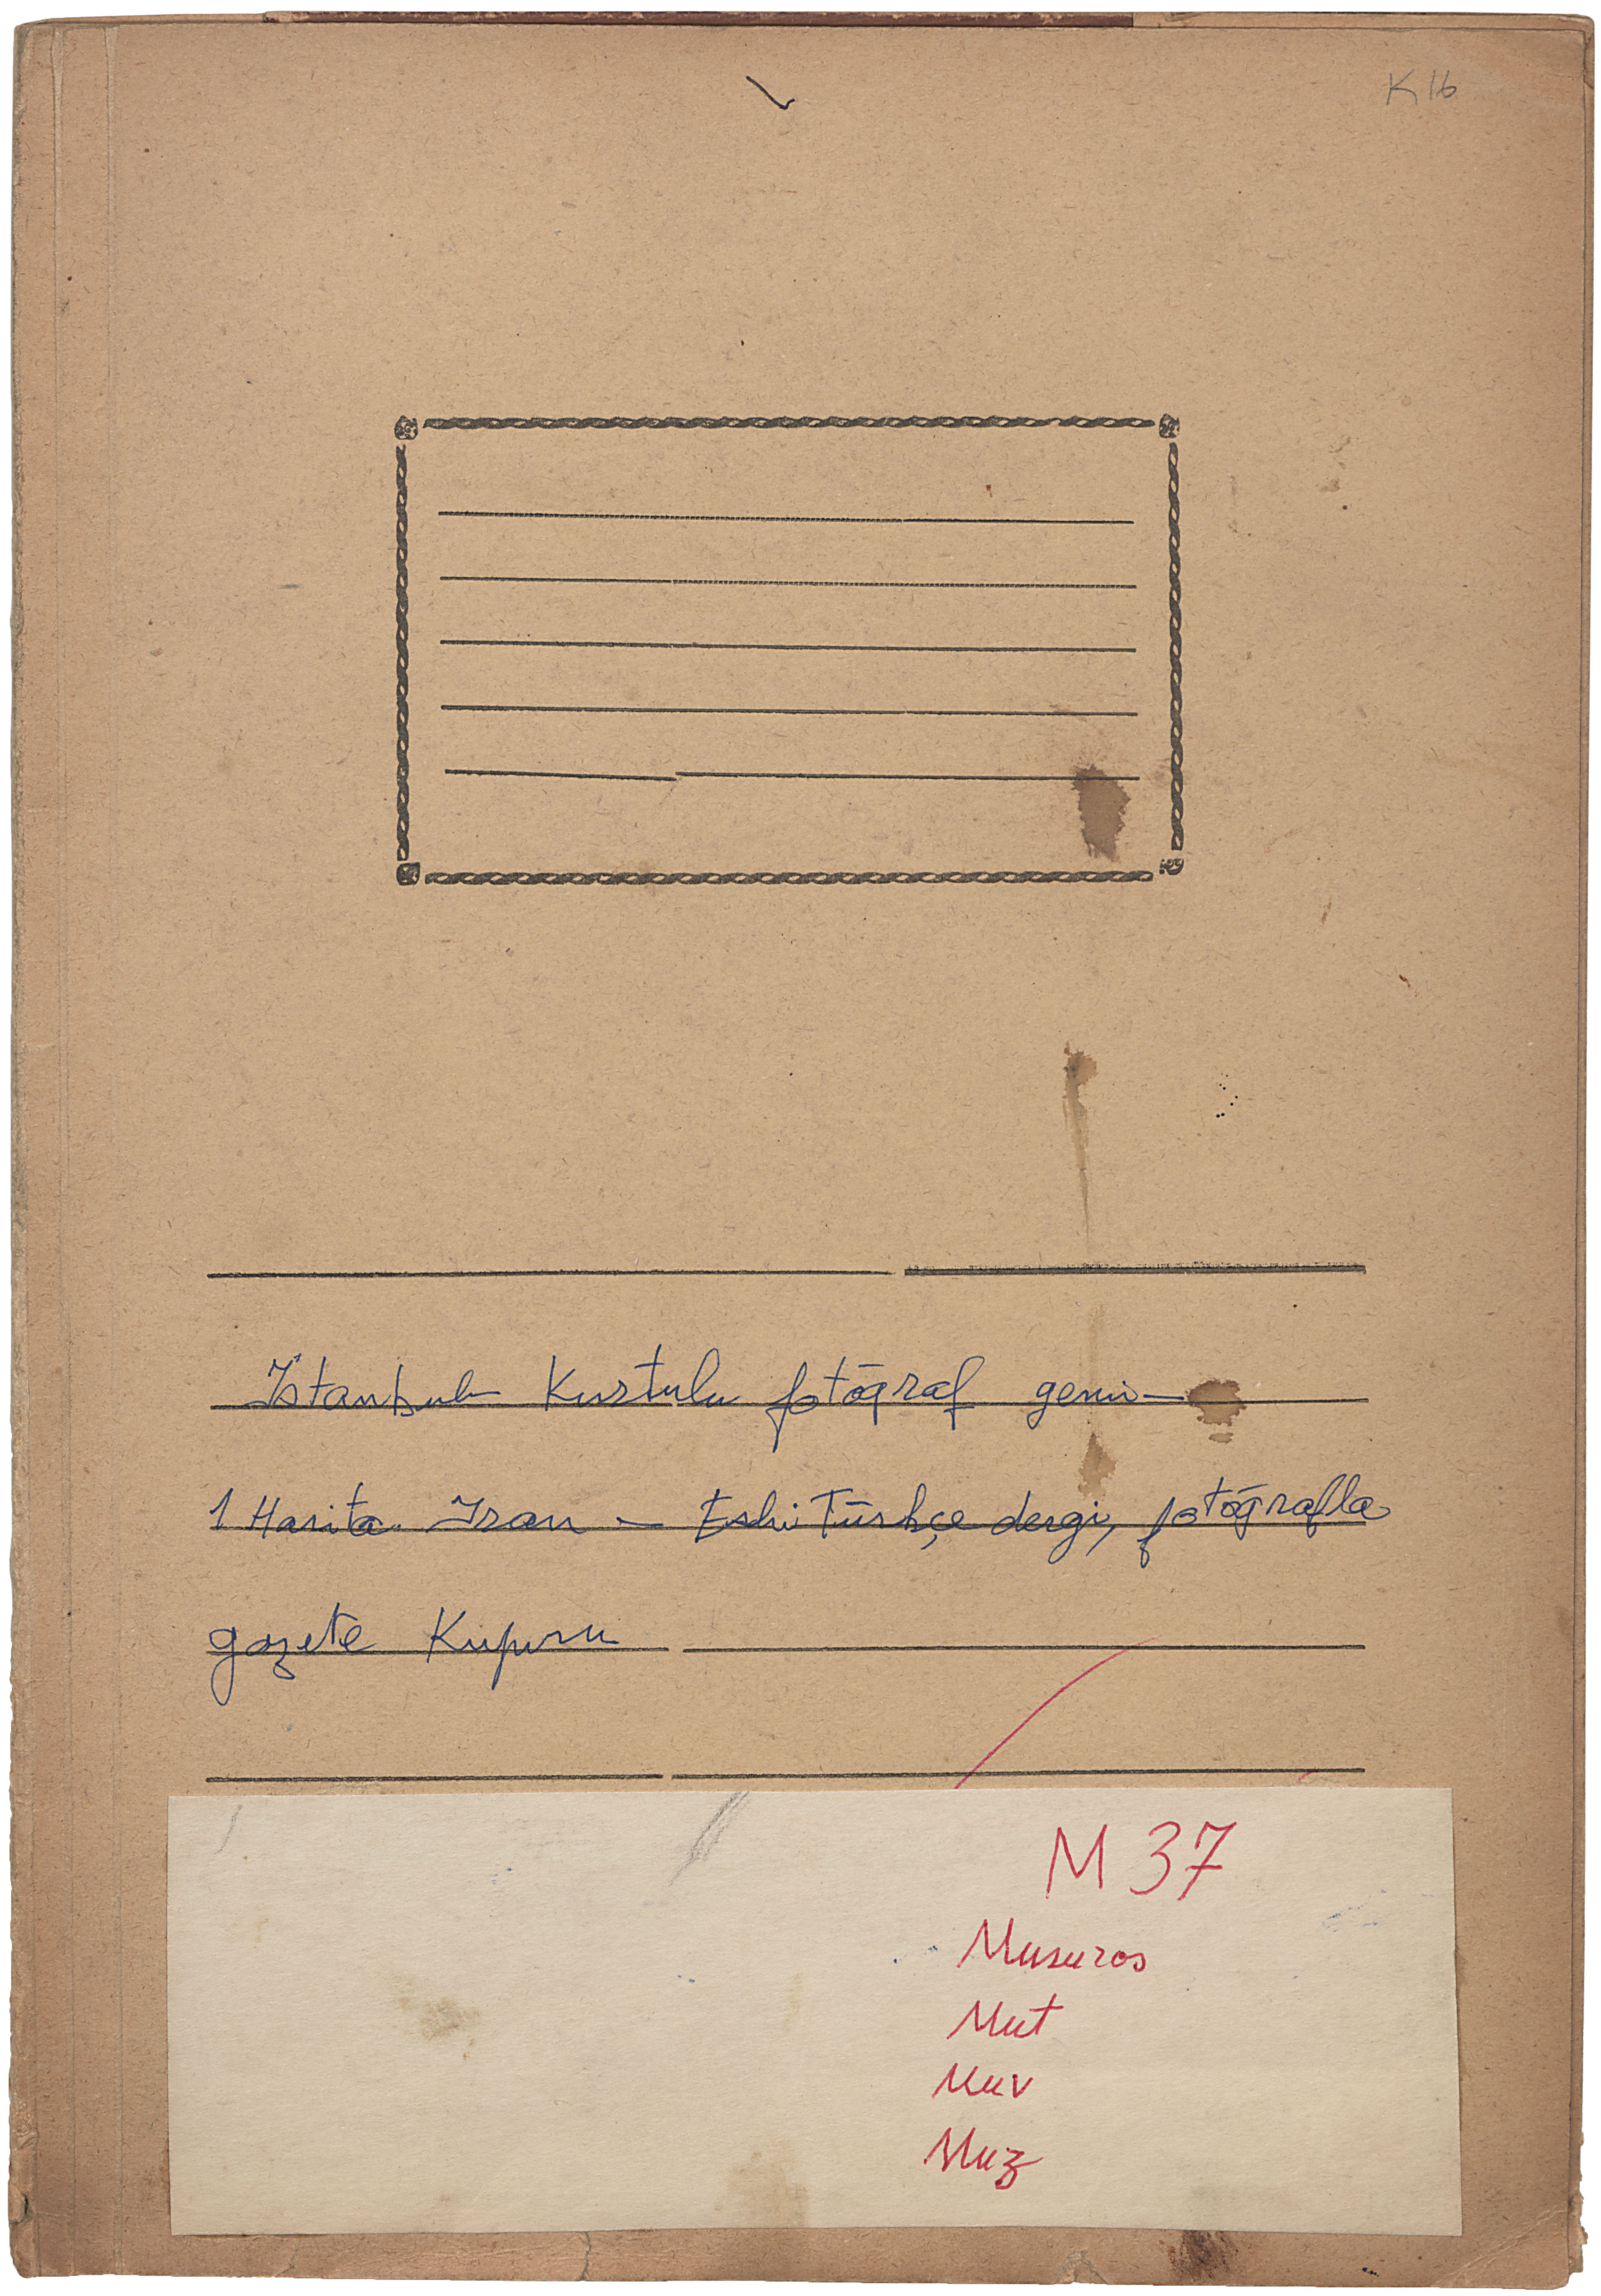 K 16
İstanbul Kurtulu fotoğraf gemi
1 Harita. İran - Eski Türkçe dergi, fotoğrafla
gazete Kupuru
M 37
Musuros
Mut
Muv
Muz